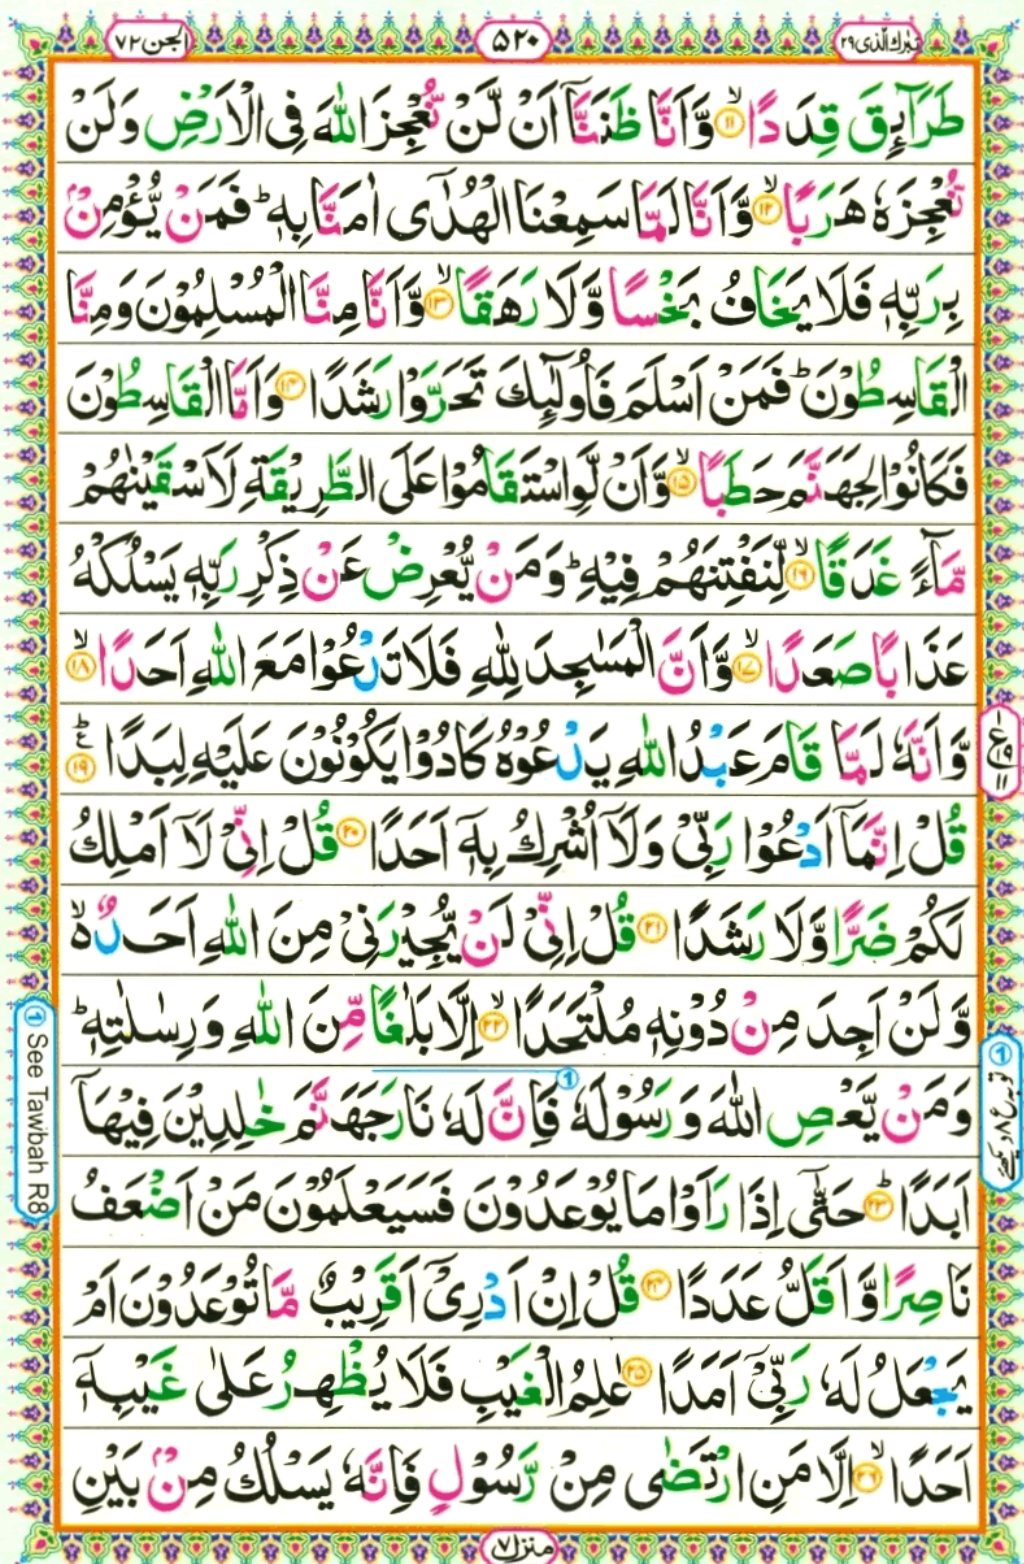 تبٰرك الّذى ٢٩
٥٢٠
الجن ٧٢
طَرَآئِقَ قِدَدًا ۙ‏﴿۱۱﴾ وَّاَنَّا ظَنَنَّاۤ اَنۡ لَّنۡ نُّعۡجِزَ اللّٰهَ فِى الۡاَرۡضِ وَلَنۡ
نُّعۡجِزَهٗ هَرَبًا ۙ‏﴿۱۲﴾ وَّاَنَّا لَمَّا سَمِعۡنَا الۡهُدٰٓى اٰمَنَّا بِهٖ‌ؕ فَمَنۡ يُّؤۡمِنۡۢ
بِرَبِّهٖ فَلَا يَخَافُ بَخۡسًا وَّلَا رَهَقًا ۙ‏﴿۱۳﴾ وَّاَنَّا مِنَّا الۡمُسۡلِمُوۡنَ وَمِنَّا
الۡقٰسِطُوۡنَ‌ؕ فَمَنۡ اَسۡلَمَ فَاُولٰٓئِكَ تَحَرَّوۡا رَشَدًا‏﴿۱۴﴾ وَاَمَّا الۡقٰسِطُوۡنَ
فَكَانُوۡا لِجَهَنَّمَ حَطَبًا ۙ‏﴿۱۵﴾ وَّاَنۡ لَّوِاسۡتَقَامُوۡا عَلَى الطَّرِيۡقَةِ لَاَسۡقَيۡنٰهُمۡ
مَّآءً غَدَقًا ۙ‏﴿۱۶﴾ لِّنَفۡتِنَهُمۡ فِيۡهِ‌ؕ وَمَنۡ يُّعۡرِضۡ عَنۡ ذِكۡرِ رَبِّهٖ يَسۡلُكۡهُ
عَذَابًا صَعَدًا ۙ‏﴿۱۷﴾ وَّاَنَّ الۡمَسٰجِدَ لِلّٰهِ فَلَا تَدۡعُوۡا مَعَ اللّٰهِ اَحَدًا ۙ‏﴿۱۸﴾
وَّاَنَّهٗ لَمَّا قَامَ عَبۡدُ اللّٰهِ يَدۡعُوۡهُ كَادُوۡا يَكُوۡنُوۡنَ عَلَيۡهِ لِبَدًا‏ ؕ﴿۱۹﴾
قُلۡ اِنَّمَاۤ اَدۡعُوۡا رَبِّىۡ وَلَاۤ اُشۡرِكُ بِهٖۤ اَحَدًا‏﴿۲۰﴾ قُلۡ اِنِّىۡ لَاۤ اَمۡلِكُ
لَكُمۡ ضَرًّا وَّلَا رَشَدًا‏﴿۲۱﴾ قُلۡ اِنِّىۡ لَنۡ يُّجِيۡرَنِىۡ مِنَ اللّٰهِ اَحَدٌ ۙ
وَّلَنۡ اَجِدَ مِنۡ دُوۡنِهٖ مُلۡتَحَدًا ۙ‏﴿۲۲﴾ اِلَّا بَلٰغًا مِّنَ اللّٰهِ وَرِسٰلٰتِهٖ‌ؕ
وَمَنۡ يَّعۡصِ اللّٰهَ وَرَسُوۡلَهٗ ① فَاِنَّ لَهٗ نَارَ جَهَنَّمَ خٰلِدِيۡنَ فِيۡهَاۤ
اَبَدًا ؕ‏﴿۲۳﴾ حَتّٰٓى اِذَا رَاَوۡا مَا يُوۡعَدُوۡنَ فَسَيَعۡلَمُوۡنَ مَنۡ اَضۡعَفُ
نَاصِرًا وَّاَقَلُّ عَدَدًا‏﴿۲۴﴾ قُلۡ اِنۡ اَدۡرِىۡۤ اَقَرِيۡبٌ مَّا تُوۡعَدُوۡنَ اَمۡ
يَجۡعَلُ لَهٗ رَبِّىۡۤ اَمَدًا‏﴿۲۵﴾ عٰلِمُ الۡغَيۡبِ فَلَا يُظۡهِرُ عَلٰى غَيۡبِهٖۤ
اَحَدًا ۙ‏﴿۲۶﴾ اِلَّا مَنِ ارۡتَضٰى مِنۡ رَّسُوۡلٍ فَاِنَّهٗ يَسۡلُكُ مِنۡۢ بَيۡنِ
منزل ٧
① See Tawbah R8
① توبہ ع ٨ دیکھئے